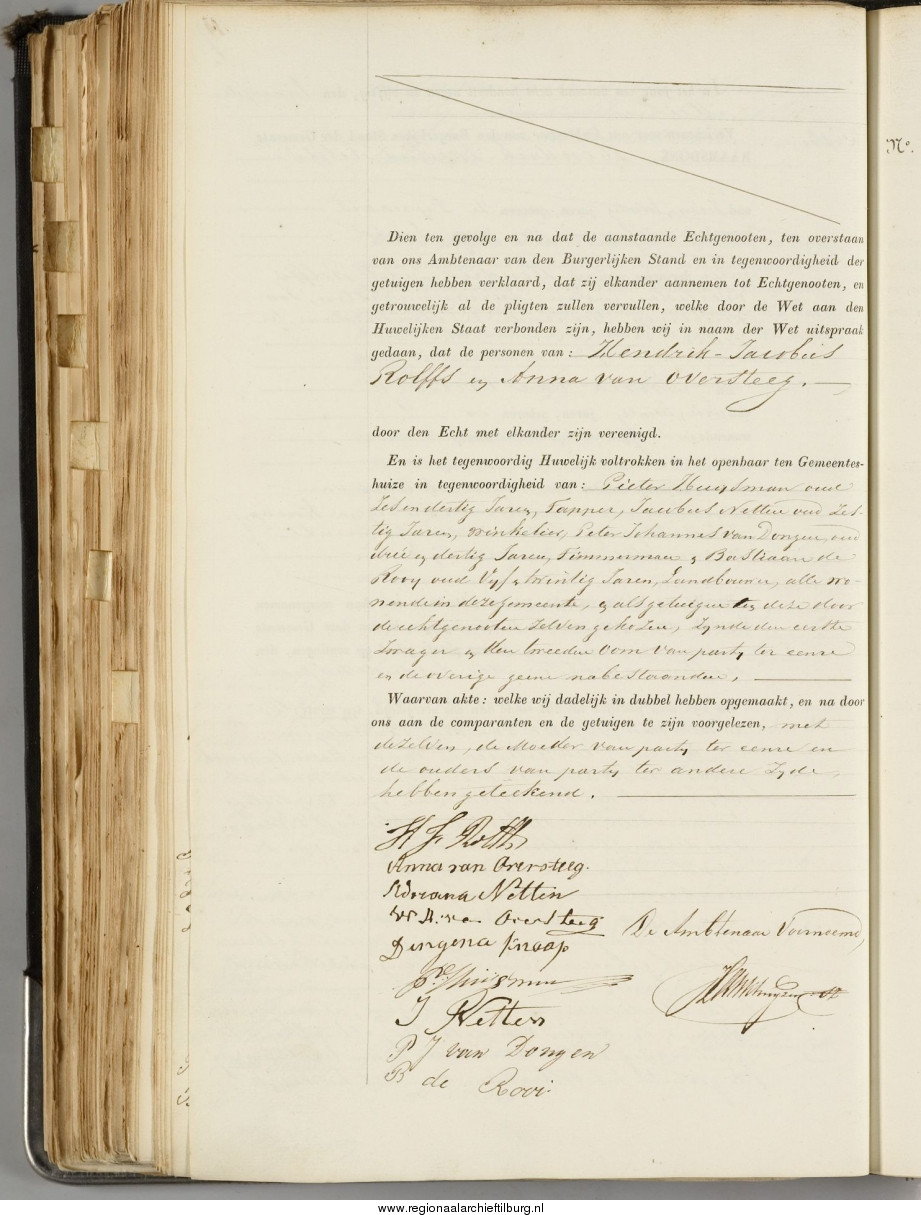 Dien ten gevolge en na dat de aanstaande Echtgenooten, ten overstaan
van ons Ambtenaar van den Burgerlijken Stand en in tegenwoordigheid der
getuigen hebben verklaard, dat zij elkander aannemen tot Echtgenooten, en
getrouwelijk al de pligten zullen vervullen, welke door de Wet aan den
Huwelijken Staat verbonden zijn, hebben wij in naam der Wet uitspraak
gedaan, dat de personen van: Hendrik-Jacobus
Rolffs en Anna van Oversteeg.
door den Echt met elkander zijn vereenigd.
En is het tegenwoordig Huwelijk voltrokken in het openbaar ten Gemeentes-
huize in tegenwoordigheid van: Pieter Huysman oud
Zes en dertig Jaren, Tapper, Jacobus Netten oud Zes-
tig Jaren, winkelier, Peter Johannes van Dongen, oud
drie en dertig Jaren, Timmerman en Bastiaan de
Rooy oud Vyf en twintig Jaren, Landbouwer, alle wo-
nende in deze gemeente, en als getuigen tot deze door
de echtgenooten zelven gekozen, Zynde den eerste
Zwager en den tweeden Oom van party ter eenre
en de overige geene nabestaanden.
Waarvan akte: welke wij dadelijk in dubbel hebben opgemaakt, en na door
ons aan de comparanten en de getuigen te zijn voorgelezen, met
dezelven, de Moeder van party ter eenre en
de ouders van party ter andere Zyde,
hebben geteekend.
H J Rolffs
Anna van Oversteeg.
Adriana Netten
W A. van Oversteeg
De Ambtenaar Voornoemd,
Dingena Knaap
P. Huisman
J Netten
P J van Dongen
B de Rooi
No.
www.regionaalarchieftilburg.nl